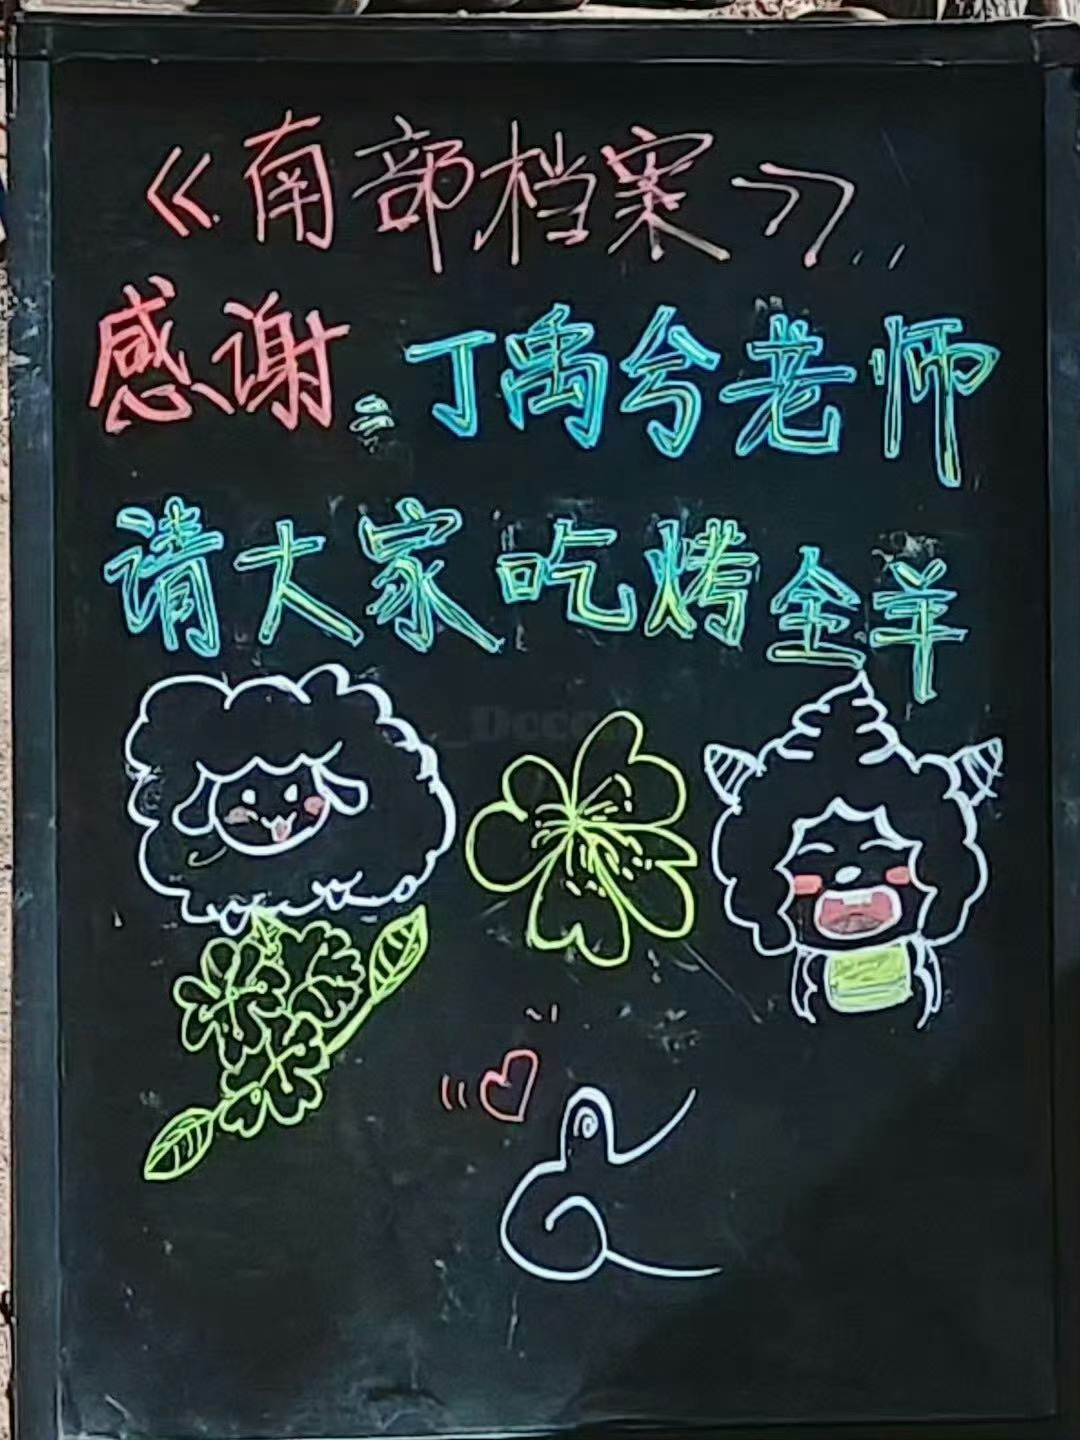 《南部档案》
感谢：丁禹兮老师
请大家吃烤全羊